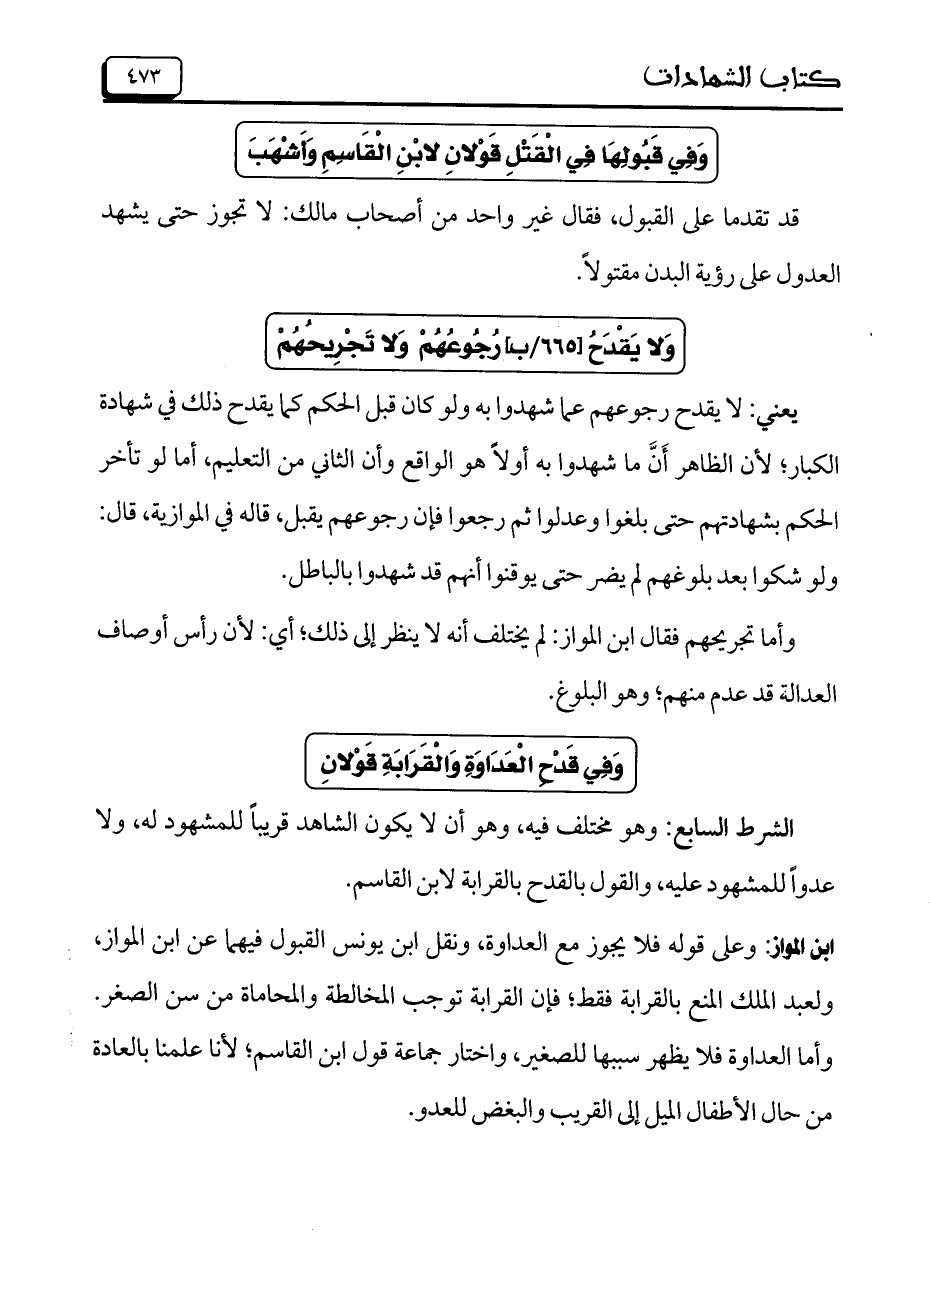 كتاب الشهادات
٤٧٣
وَفِي قَبُولِهَا فِي الْقَتْلِ قَوْلانِ لابْنِ الْقَاسِمِ وَأَشْهَبَ
قد تقدما على القبول، فقال غير واحد من أصحاب مالك: لا تجوز حتى يشهد
العدول على رؤية البدن مقتولاً.
وَلا يَقْدَحُ [٦٦٥/ب] رُجُوعُهُمْ وَلا تَجْرِيحُهُمْ
يعني: لا يقدح رجوعهم عما شهدوا به ولو كان قبل الحكم كما يقدح ذلك في شهادة
الكبار؛ لأن الظاهر أَنَّ ما شهدوا به أولاً هو الواقع وأن الثاني من التعليم، أما لو تأخر
الحكم بشهادتهم حتى بلغوا وعدلوا ثم رجعوا فإن رجوعهم يقبل، قاله في الموازية، قال:
ولو شكوا بعد بلوغهم لم يضر حتى يوقنوا أنهم قد شهدوا بالباطل.
وأما تجريحهم فقال ابن المواز: لم يختلف أنه لا ينظر إلى ذلك؛ أي: لأن رأس أوصاف
العدالة قد عدم منهم؛ وهو البلوغ.
وَفِي قَدْحِ الْعَدَاوَةِ وَالْقَرَابَةِ قَوْلانِ
الشرط السابع: وهو مختلف فيه، وهو أن لا يكون الشاهد قريباً للمشهود له، ولا
عدواً للمشهود عليه، والقول بالقدح بالقرابة لابن القاسم.
ابن المواز: وعلى قوله فلا يجوز مع العداوة، ونقل ابن يونس القبول فيهما عن ابن المواز،
ولعبد الملك المنع بالقرابة فقط؛ فإن القرابة توجب المخالطة والمحاماة من سن الصغر.
وأما العداوة فلا يظهر سببها للصغير، واختار جماعة قول ابن القاسم؛ لأنا علمنا بالعادة
من حال الأطفال الميل إلى القريب والبغض للعدو.